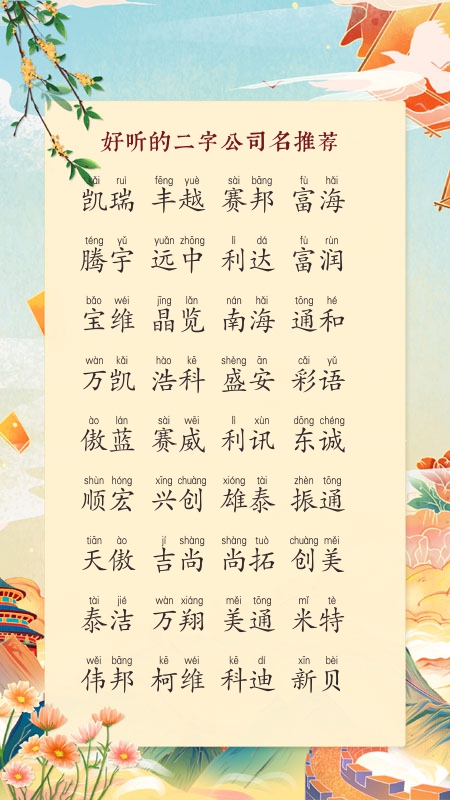 好听的二字公司名推荐
kǎi ruì fēng yuè sài bāng fù hǎi
凯瑞 丰越 赛邦 富海
téng yǔ yuǎn zhōng lì dá fù rùn
腾宇 远中 利达 富润
bǎo wéi jīng lǎn nán hǎi tōng hé
宝维 晶览 南海 通和
wàn kǎi hào kē shèng ān cǎi yǔ
万凯 浩科 盛安 彩语
ào lán sài wēi lì xùn dōng chéng
傲蓝 赛威 利讯 东诚
shùn hóng xīng chuàng xióng tài zhèn tōng
顺宏 兴创 雄泰 振通
tiān ào jí shàng shàng tuò chuàng měi
天傲 吉尚 尚拓 创美
tài jié wàn xiáng měi tōng mǐ tè
泰洁 万翔 美通 米特
wěi bāng kē wéi kē dí xīn bèi
伟邦 柯维 科迪 新贝